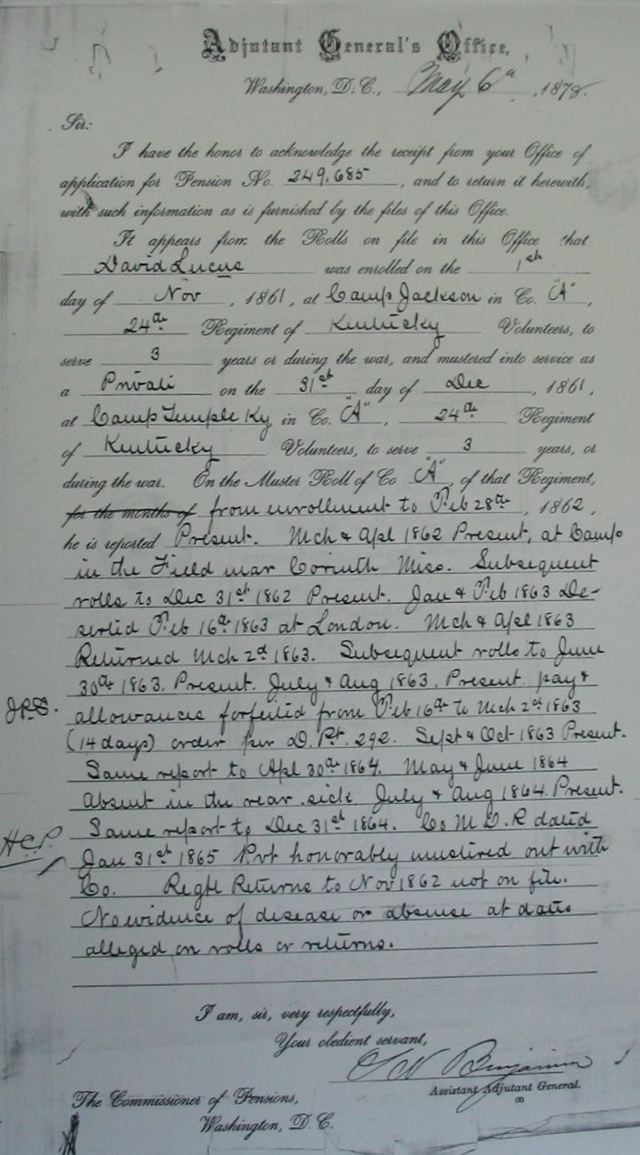 Adjutant General's Office,
Washington, D.C., May 6th, 1878.
Sir:
I have the honor to acknowledge the receipt from your Office of
application for Pension No. 249.685, and to return it herewith,
with such information as is furnished by the files of this Office.
It appears from the Rolls on file in this Office that
David Lucas was enrolled on the 1st
day of Nov, 1861, at Camp Jackson in Co. "A",
24th Regiment of Kentucky Volunteers, to
serve 3 years or during the war, and mustered into service as
a Private on the 31st day of Dec, 1861,
at Camp Temple Ky in Co. "A", 24th Regiment
of Kentucky Volunteers, to serve 3 years, or
during the war. On the Muster Roll of Co "A", of that Regiment,
for the months of from enrollment to Feb 28th, 1862,
he is reported Present. Mch & Apl 1862 Present, at Camp
in the Field near Corinth Miss. Subsequent
rolls to Dec 31st 1862 Present. Jan & Feb 1863 De-
serted Feb 16th 1863 at London. Mch & Apl 1863
Returned Mch 2d 1863. Subsequent rolls to June
30th 1863. Present. July & Aug 1863, Present. pay &
J.R.S. allowances forfeited from Feb 16th to Mch 2d 1863
(14 days) order per D. Pt. 292. Sept & Oct 1863 Present.
Same report to Apl 30th 1864. May & June 1864
Absent in the rear sick July & Aug 1864. Present.
Same report to Dec 31st 1864. Co M.O.R dated
H.C.P. Jan 31st 1865 Pvt honorably mustered out with
Co. Regtl Returns to Nov 1862 not on file.
No evidence of disease or absense at dates
alleged on rolls or returns.
I am, sir, very respectfully,
Your obedient servant,
Benjamin
Assistant Adjutant General.
The Commissioner of Pensions,
Washington, D.C.